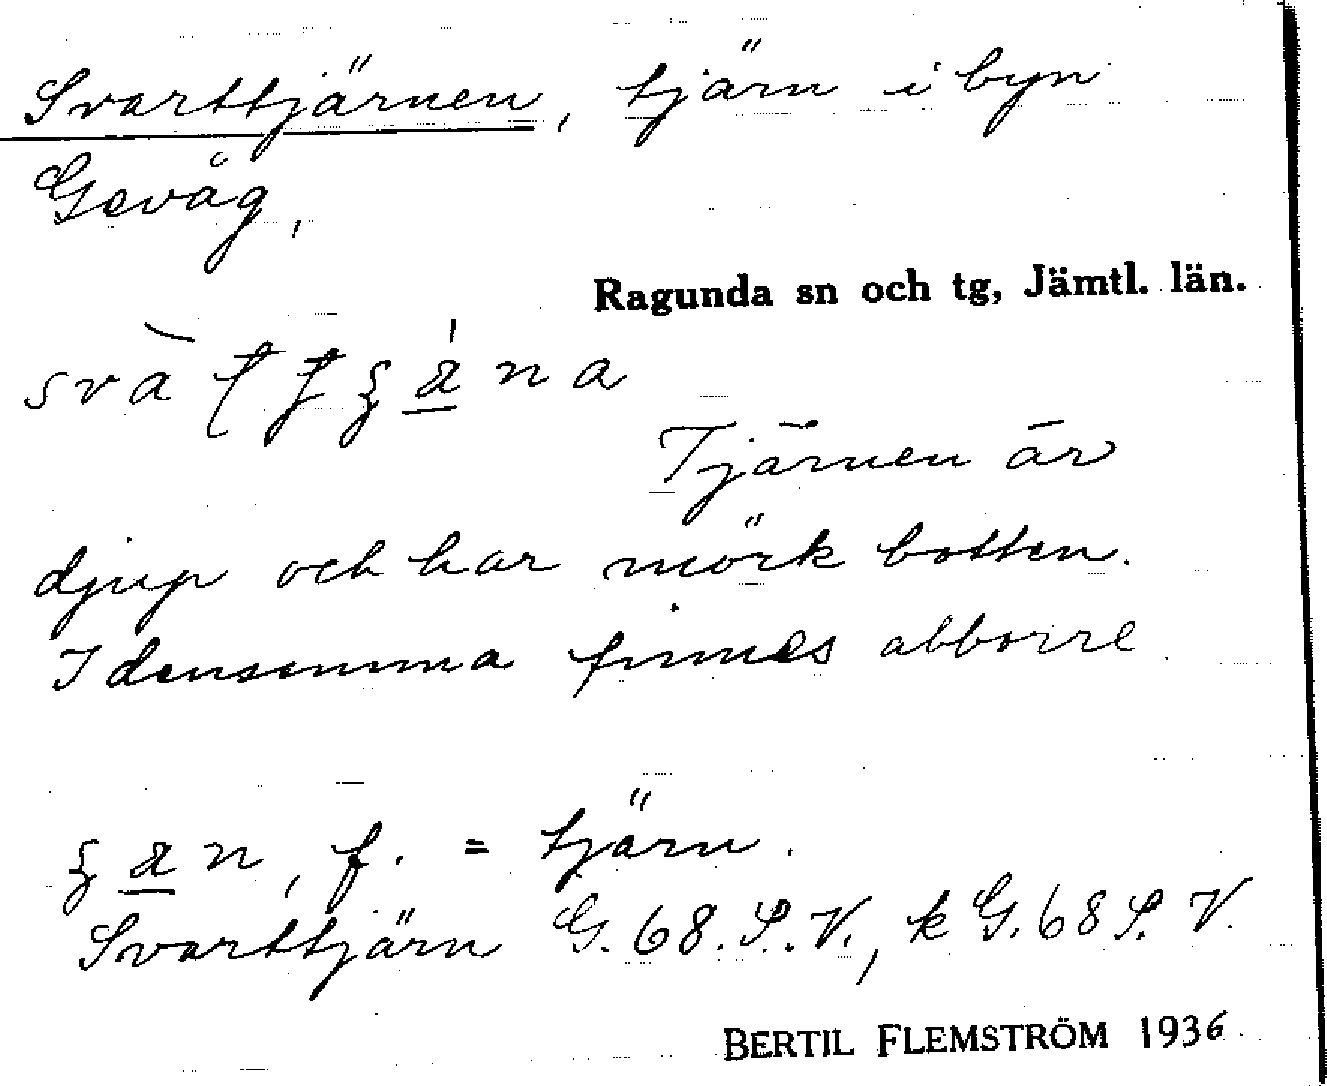 Svarttjärnen, tjärn i byn
Gevåg,
Ragunda sn och tg, Jämtl. län.
Tjärnen är
djup och har mörk botten.
I densamma finnes abborre
f. = tjärn.
Svarttjärn G. 68. S. V., k G. 68 S. V.
BERTIL FLEMSTRÖM 1936